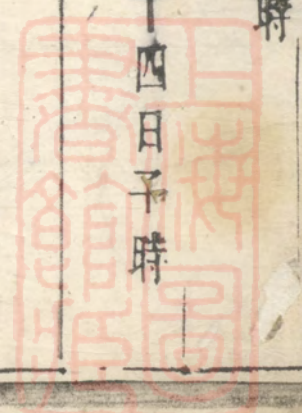 時
四日子時
上海圖
書館藏